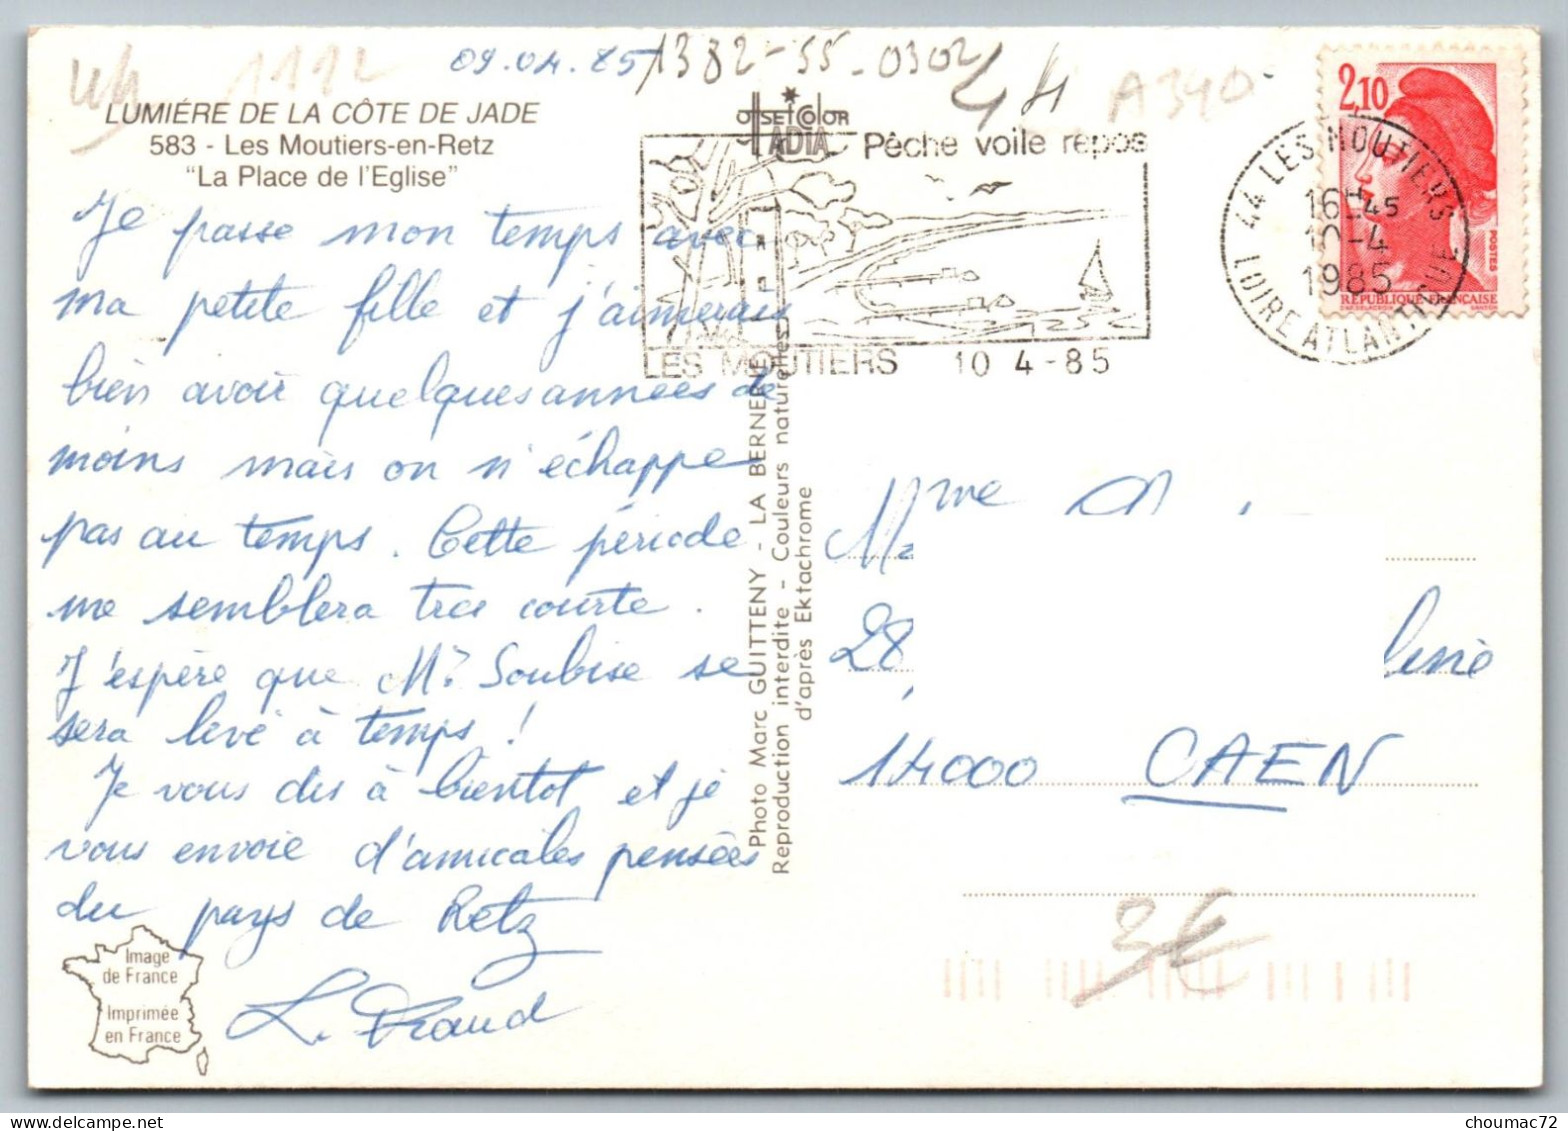 1112
09.04.85
1382-55-0302
44
A340
LUMIÉRE DE LA CÔTE DE JADE
583 - Les Moutiers-en-Retz
"La Place de l'Eglise"
Je passe mon temps avec
ma petite fille et j'aimerais
bien avoir quelques années de
moins mais on n'échappe
pas au temps. Cette période
me semblera très courte.
J'espère que Mr Soubise se
sera levé à temps !
Je vous dis à bientot et je
vous envoie d'amicales pensées
du pays de Retz
Image
de France
Imprimée
en France
OFFSET COLOR
ADIA
Pêche voile repos
LES MOUTIERS 10 4-85
44 LES MOUTIERS
16H45
10-4
1985
LOIRE ATLANTIQUE
2,10
POSTES
RÉPUBLIQUE FRANÇAISE
Photo Marc GUITTENY - LA BERNERIE
Reproduction interdite - Couleurs naturelles
d'après Ektachrome
Mme
28,
14000 CAEN
3€
choumac72